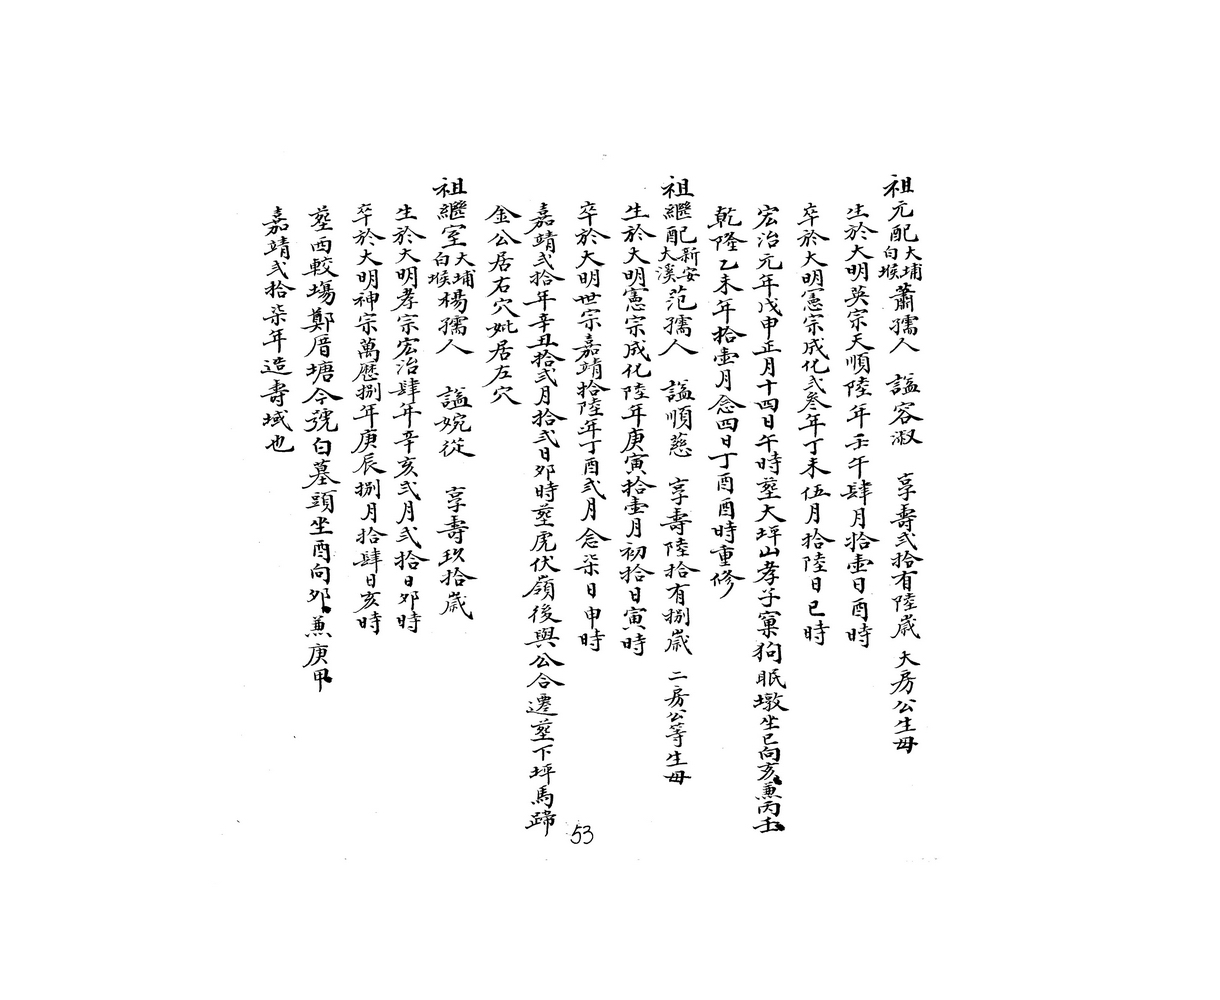 祖元配大埔白堠蕭孺人　諡容淑　享壽弍拾有陸歲　大房公生母
生於大明英宗天順陸年壬午肆月拾壷日酉時
卒於大明憲宗成化弍叁年丁未伍月拾陸日巳時
宏治元年戊申正月十四日午時塟大坪山孝子窠狗眠墩坐巳向亥兼丙壬
乾隆乙未年拾壷月念四日丁酉酉時重修
祖繼配新安大溪范孺人　諡順慈　享壽陸拾有捌歲　二房公等生母
生於大明憲宗成化陸年庚寅拾壷月初拾日寅時
卒於大明世宗嘉靖拾陸年丁酉弍月念柒日申時
嘉靖弍拾年辛丑拾弍月拾弍日夘時塟虎伏嶺後與公合遷塟下坪馬蹄
金公居右穴妣居左穴
祖繼室大埔白堠楊孺人　諡婉從　享壽玖拾歲
生於大明孝宗宏治肆年辛亥弍月弍拾日夘時
卒於大明神宗萬歷捌年庚辰捌月拾肆日亥時
塟西較塲鄭厝塘今號白墓頭坐酉向夘兼庚甲
嘉靖弍拾柒年造壽域也
53